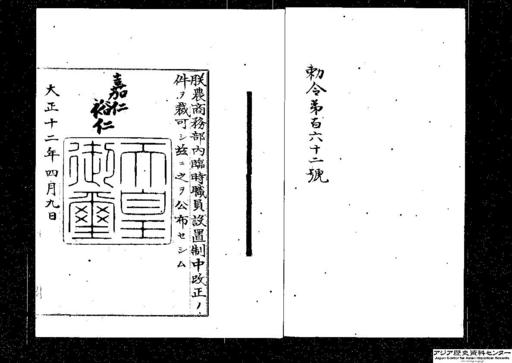 勅令第百六十二號
朕農商務部內臨時職員設置制中改正ノ
件ヲ裁可シ玆ニ之ヲ公布セシム
嘉仁
裕仁
天皇
御璽
大正十二年四月九日
アジア歴史資料センター
Japan Center for Asian Historical Records